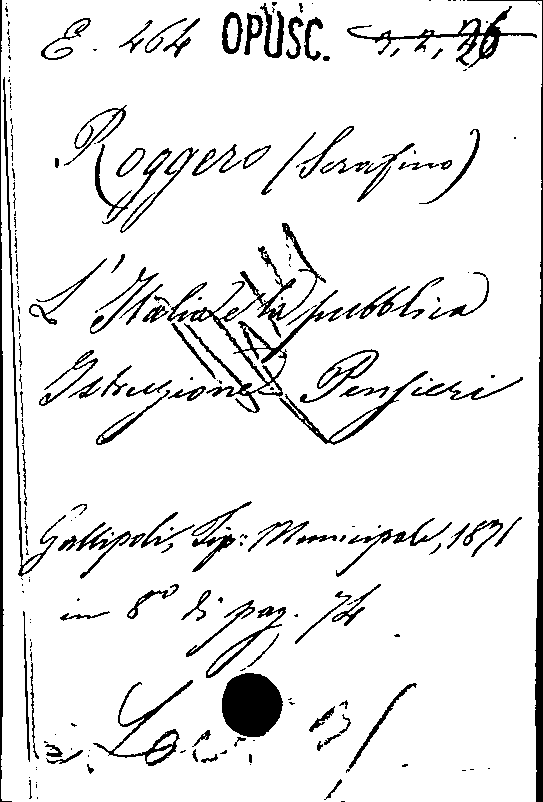 E. 464 OPUSC. 3, 2, 26
Roggero (Serafino)
L'Italia e la pubblica
Istruzione. Pensieri
Gallipoli, Tip: Municipale, 1871
in 8º di pag. 74